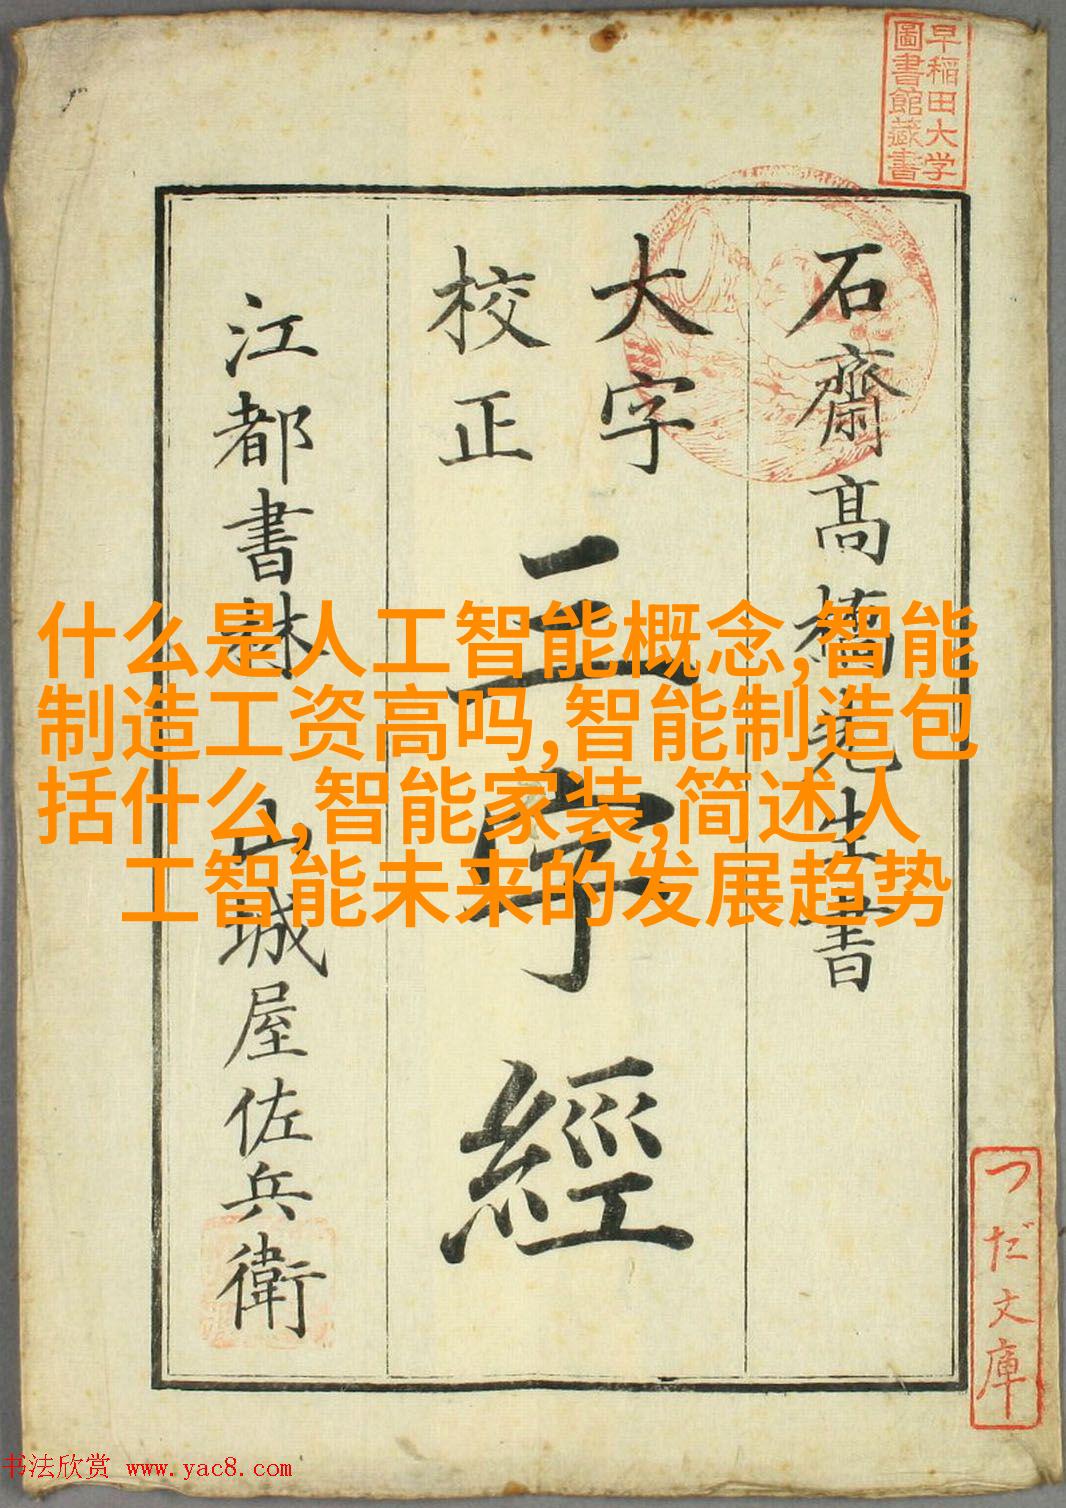 早稲田大学
圖書館藏書
石齋髙橋先生書
大字
校正
三字經
江都書林 山城屋佐兵衛
什么是人工智能概念,智能
制造工资高吗,智能制造包
括什么,智能家装,简述人
工智能未来的发展趋势
つだ文庫
书法欣赏 www.yac8.com